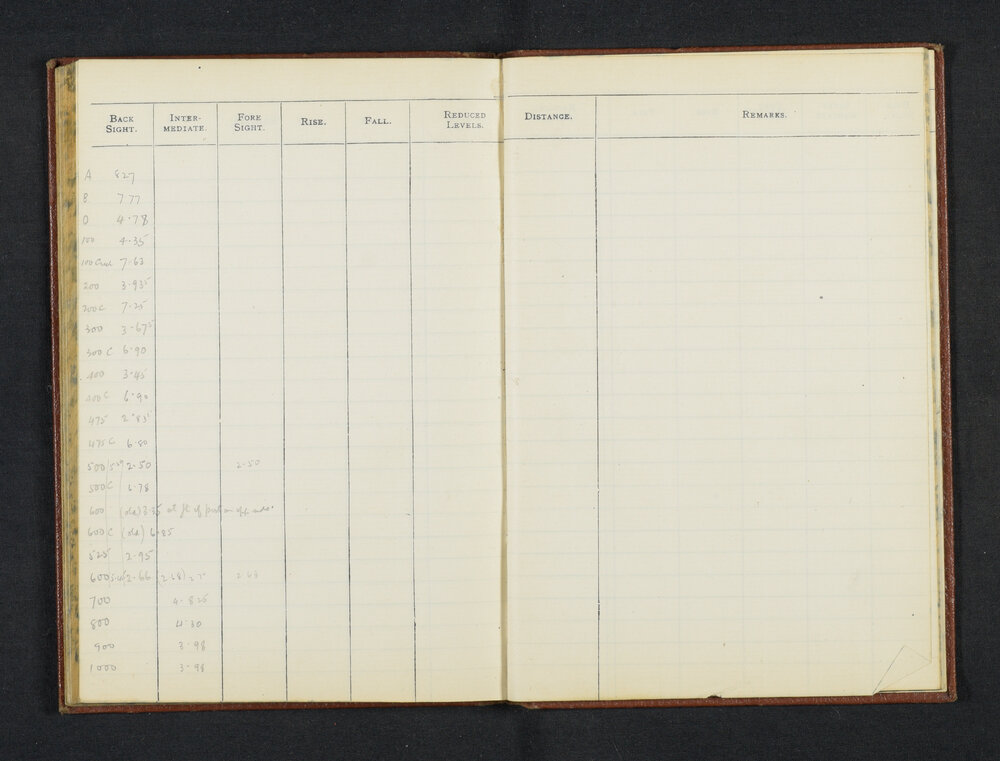 BACK SIGHT. INTER-MEDIATE. FORE SIGHT. RISE. FALL. REDUCED LEVELS. DISTANCE. REMARKS.
A 827
B 7.77
0 4.78
100 4.35
100 7.63
200 3.935
200C 7.25
300 3.675
300 C 6.90
400 3.45
400 C 6.90
475 2.85
475 C 6.80
500 2.50 2.50
500C 6.78
600 (old) at ft of
600 C (old) 6.85
525 2.95
600 2.66 (2.68)
700 4.825
800 4.30
900 3.98
1000 3.98